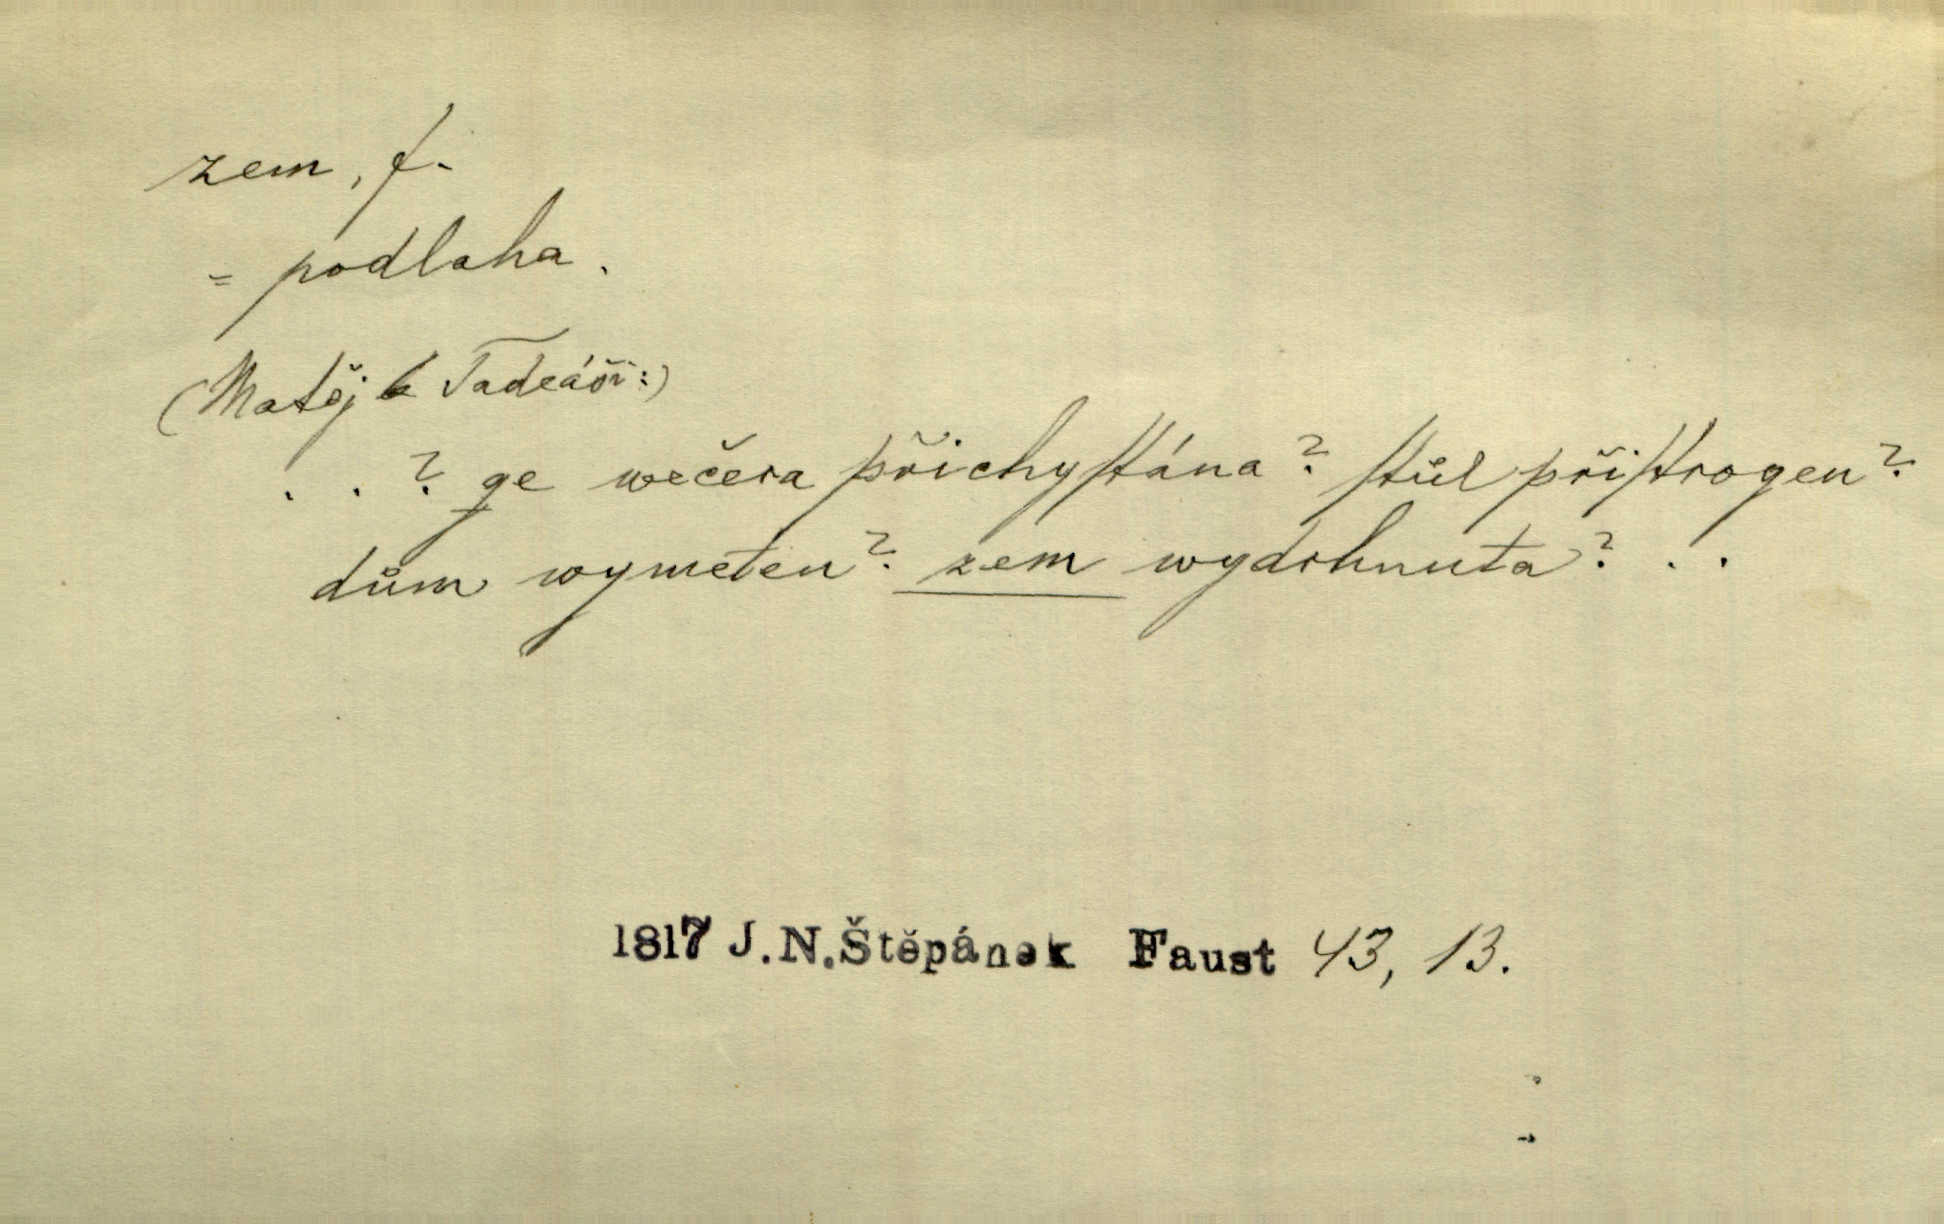 zem, f.
= podlaha.
(Matěj k Tadeáši:)
. . ? ge wečera přichystána? stůl přistrogen?
dům wymeten? zem wydrhnuta? . .
1817 J.N.Štěpánek Faust 43, 13.